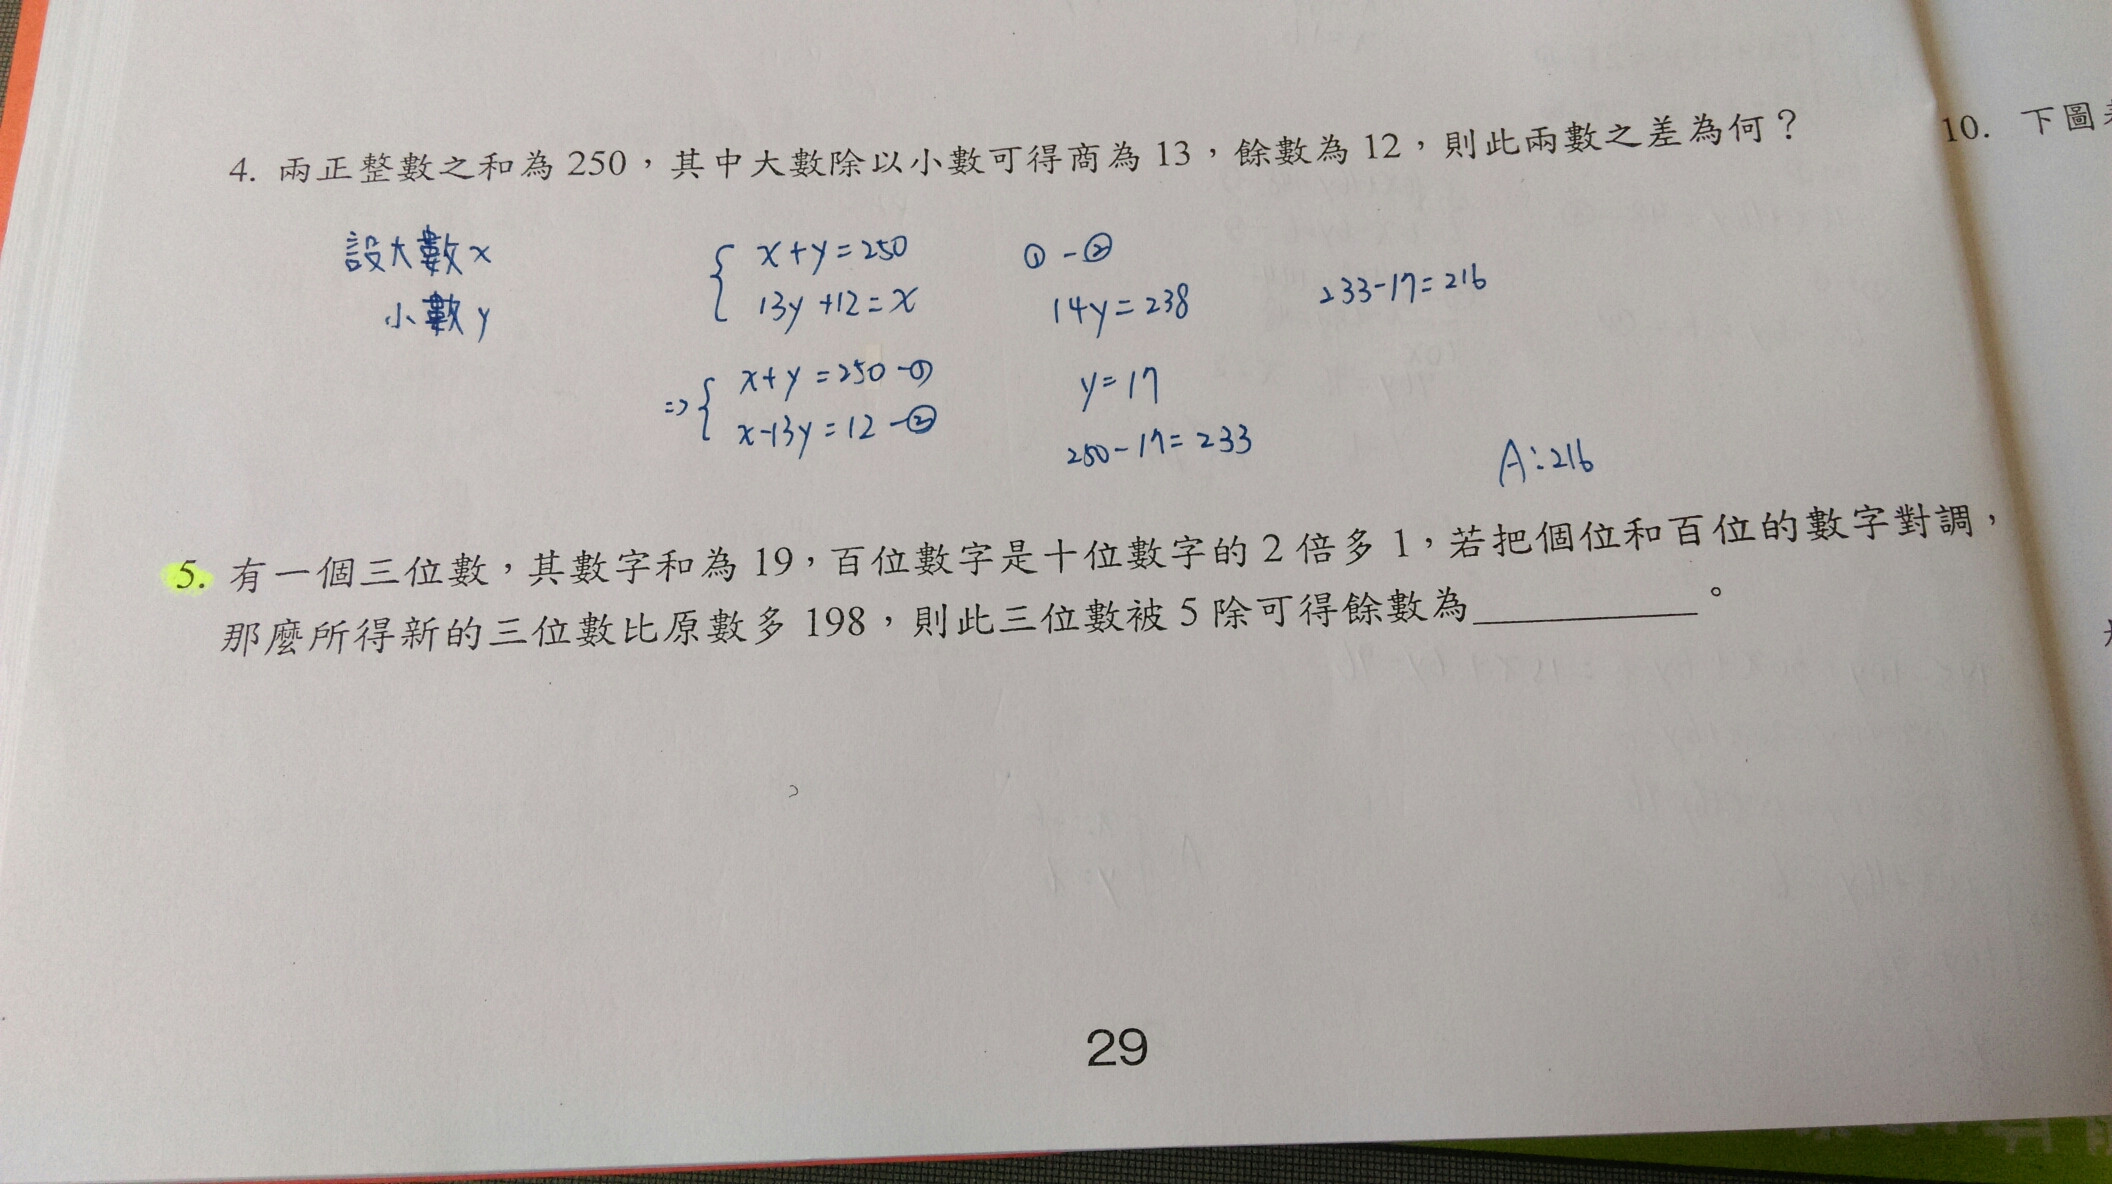 4. 兩正整數之和為 250，其中大數除以小數可得商為 13，餘數為 12，則此兩數之差為何？
設大數 x
小數 y
{ x+y=250
13y+12=x
⇒{ x+y=250-①
x-13y=12-②
①-②
14y=238
y=17
250-17=233
233-17=216
A:216
5. 有一個三位數，其數字和為 19，百位數字是十位數字的 2 倍多 1，若把個位和百位的數字對調，
那麼所得新的三位數比原數多 198，則此三位數被 5 除可得餘數為__________。
29
10. 下圖